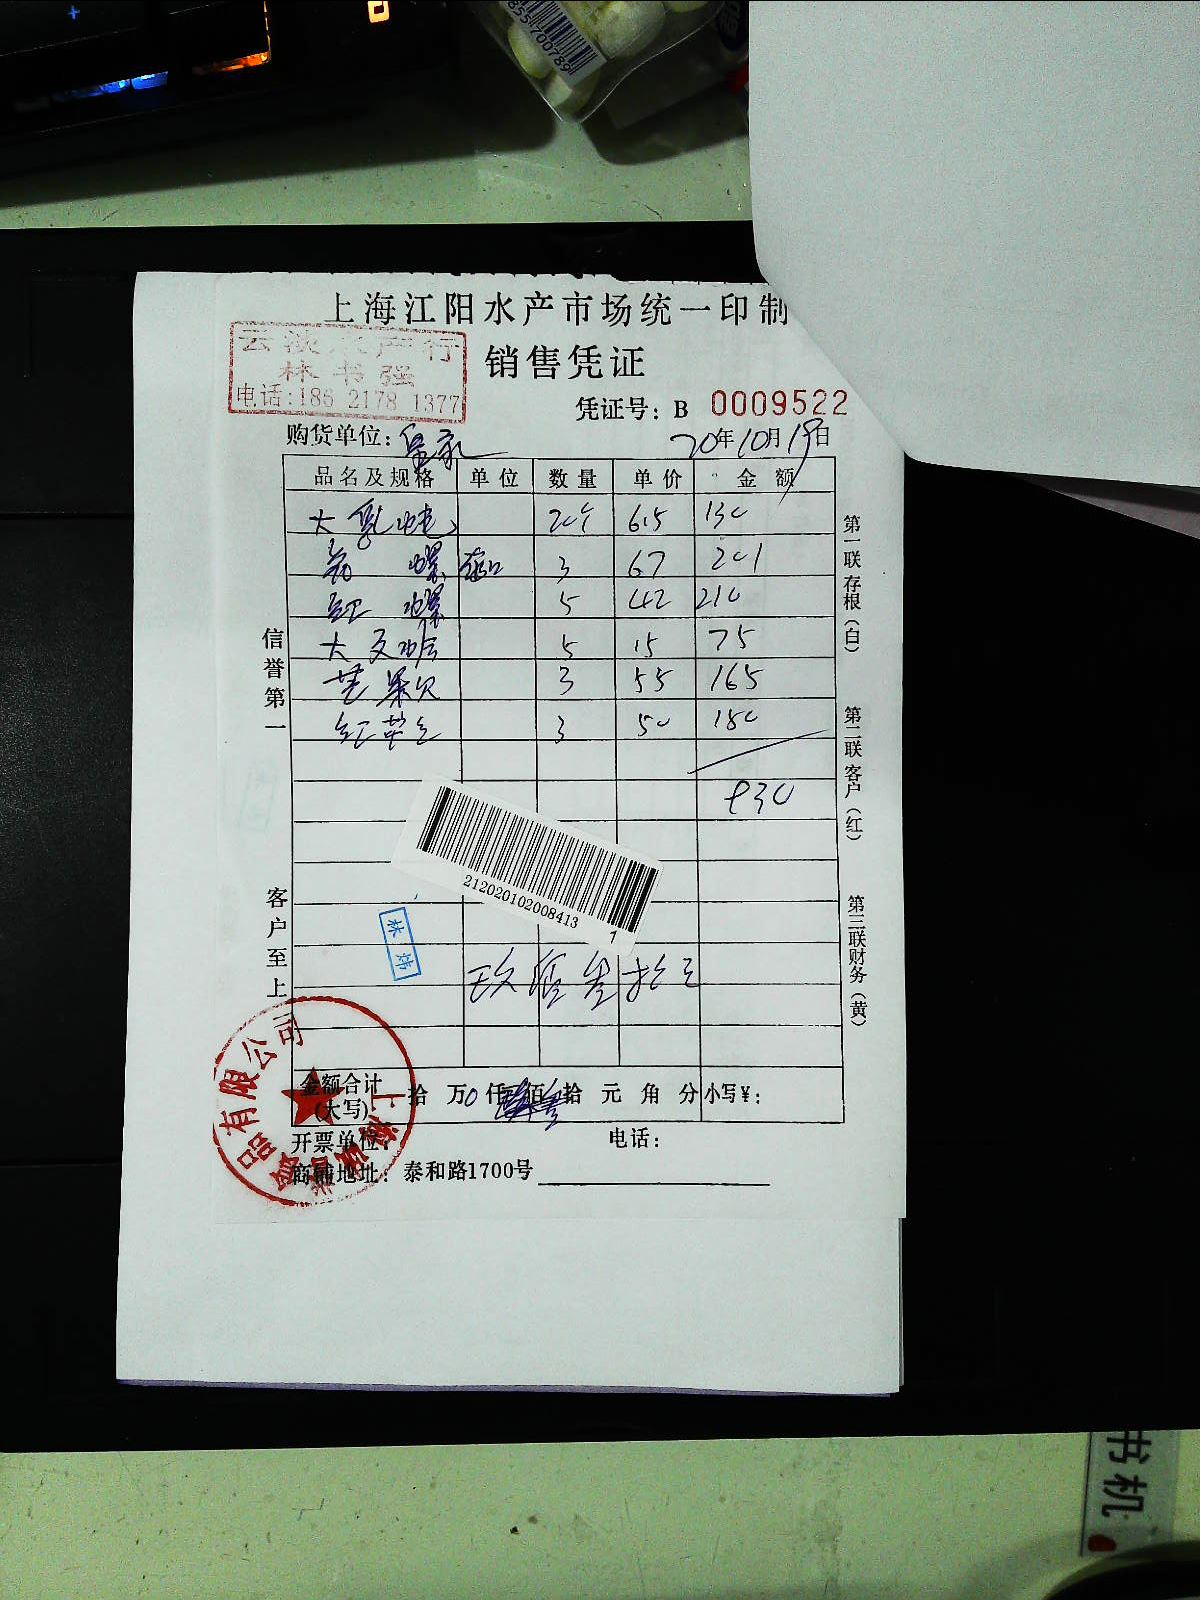 855700789
上海江阳水产市场统一印制
云淡水产行
林书强
电话:186 2178 1377
销售凭证
凭证号：B 0009522
购货单位：
20年10月19日
品名及规格 单位 数量 单价 金额
大 20个 6.5 130
螺 3 67 201
红 螺 5 42 210
大 文蛤 5 15 75
3 55 165
3 50 150
930
212020102008413
1
林炜
玖佰叁拾元
金额合计(大写) 拾 万 0 仟 佰 拾 元 角 分 小写¥：
开票单位： 电话：
商铺地址：泰和路1700号
信誉第一
客户至上
第一联存根（白）
第二联客户（红）
第三联财务（黄）
品有限公司
上海
书机